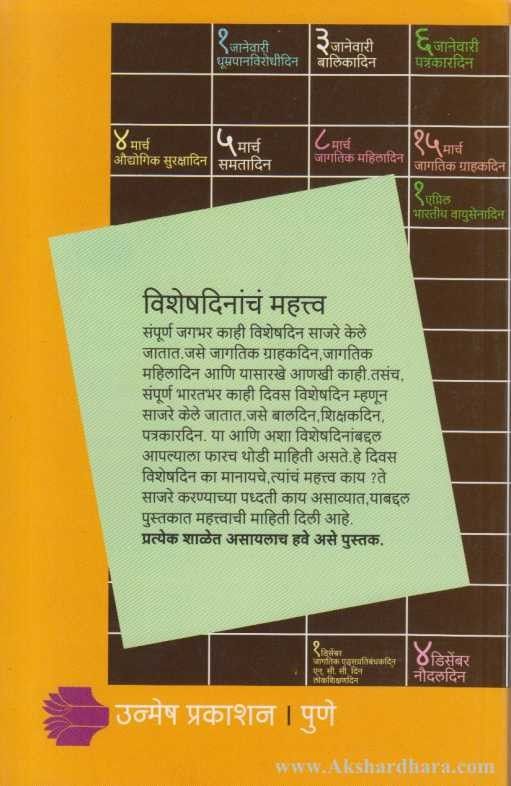 १ जानेवारी
धूम्रपानविरोधीदिन
३ जानेवारी
बालिकादिन
६ जानेवारी
पत्रकारदिन
४ मार्च
औद्योगिक सुरक्षादिन
५ मार्च
समतादिन
८ मार्च
जागतिक महिलादिन
१५ मार्च
जागतिक ग्राहकदिन
१ एप्रिल
भारतीय वायुसेनादिन
विशेषदिनांचं महत्त्व
संपूर्ण जगभर काही विशेषदिन साजरे केले
जातात.जसे जागतिक ग्राहकदिन,जागतिक
महिलादिन आणि यासारखे आणखी काही.तसंच,
संपूर्ण भारतभर काही दिवस विशेषदिन म्हणून
साजरे केले जातात.जसे बालदिन,शिक्षकदिन,
पत्रकारदिन. या आणि अशा विशेषदिनांबद्दल
आपल्याला फारच थोडी माहिती असते.हे दिवस
विशेषदिन का मानायचे,त्यांचं महत्त्व काय ?ते
साजरे करण्याच्या पध्दती काय असाव्यात,याबद्दल
पुस्तकात महत्त्वाची माहिती दिली आहे.
प्रत्येक शाळेत असायलाच हवे असे पुस्तक.
१ डिसेंबर
जागतिक एड्सप्रतिबंधकदिन
एन. सी. सी. दिन
लोकशिक्षणदिन
४ डिसेंबर
नौदलदिन
उन्मेष प्रकाशन | पुणे
www.Akshardhara.com